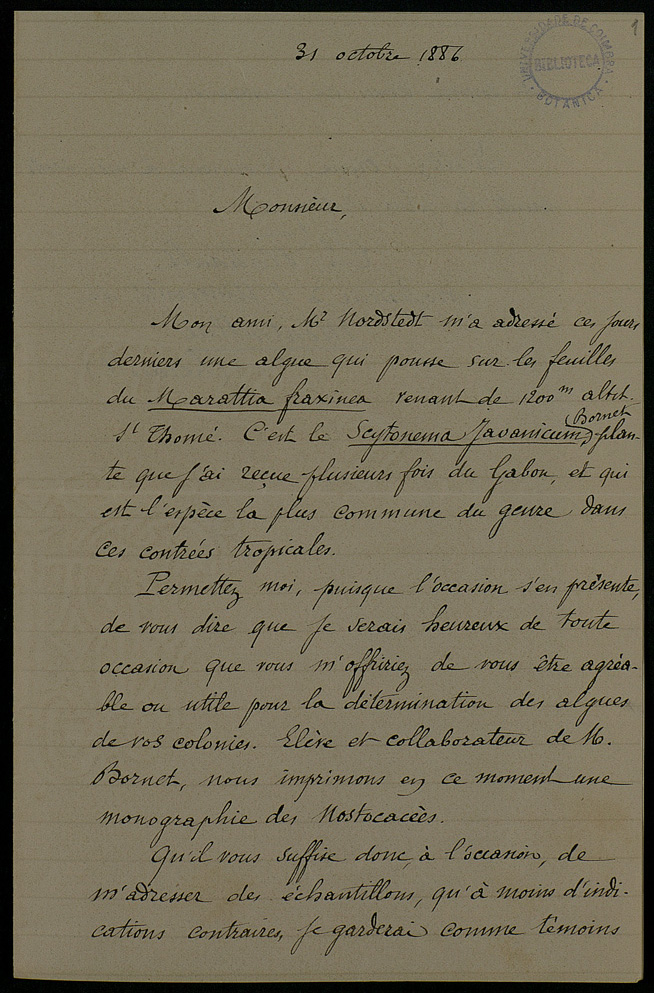 1
UNIVERSIDADE DE COIMBRA
BIBLIOTECA
BOTANICA
31 octobre 1886
Monsieur,
Mon ami, Mr Nordstedt m'a adressé ces jours
derniers une algue qui pousse sur les feuilles
du Marattia fraxinea venant de 1200m altit.
St Thomé. C'est le Scytonema Javanicum (Bornet), plan-
te que j'ai reçue plusieurs fois du Gabon, et qui
est l'espèce la plus commune du genre dans
ces contrées tropicales.
Permettez moi, puisque l'occasion s'en présente,
de vous dire que je serais heureux de toute
occasion que vous m'offririez de vous être agréa-
ble ou utile pour la détermination des algues
de vos colonies. Elève et collaborateur de M.
Bornet, nous imprimons en ce moment une
monographie des Nostocacées.
Qu'il vous suffise donc, à l'occasion, de
m'adresser des échantillons, qu'à moins d'indi-
cations contraires, je garderai comme témoins